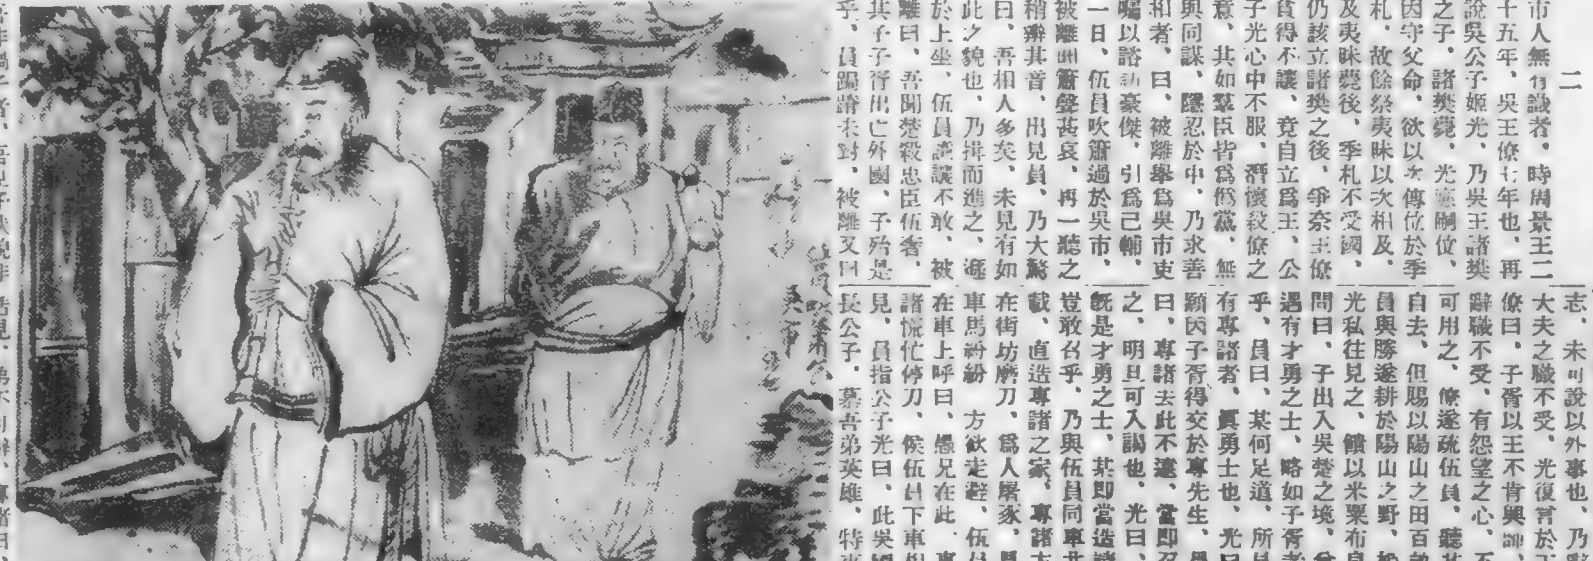 二
市人無有識者、時周景王二
十五年、吳王僚七年也、再
說吳公子姬光、乃吳王諸樊
之子、諸樊薨、光應嗣位、
因守父命、欲以次傳位於季
札、故餘祭夷昧以次相及、
及夷昧薨後、季札不受國、
仍該立諸樊之後、爭奈王僚
貪得不讓、竟自立爲王、公
子光心中不服、潛懷殺僚之
意、其如羣臣皆爲僚黨、無
與同謀、隱忍於中、乃求善
相者、曰、被離舉爲吳市吏
囑以諮訪豪傑、引爲己輔、
一日、伍員吹簫過於吳市、
被離聞簫聲甚哀、再一聽之
稍辨其音、出見員、乃大驚
曰、吾相人多矣、未見有如
此之貌也、乃揖而進之、遜
於上坐、伍員謙讓不敢、被
離曰、吾聞楚殺忠臣伍奢、
其子子胥出亡外國、子殆是
乎、員跼蹐未對、被離又曰
志、未可說以外事也、乃辭
大夫之職不受、光復言於王
僚曰、子胥以王不肯興師、
辭職不受、有怨望之心、不
可用之、僚遂疏伍員、聽其
自去、但賜以陽山之田百畝
員與勝遂耕於陽山之野、
光私往見之、饋以米粟布帛
問曰、子出入吳楚之境、曾
遇有才勇之士、略如子胥者
乎、員曰、某何足道、所見
有專諸者、眞勇士也、光曰
願因子胥得交於專先生、員
曰、專諸去此不遠、當即召
之、明旦可入謁也、光曰、
旣是才勇之士、某即當造請
豈敢召乎、乃與伍員同車共
載、直造專諸之家、專諸方
在街坊磨刀、爲人屠豕、見
車馬紛紛、方欲走避、伍員
在車上呼曰、愚兄在此、專
諸慌忙停刀、候伍員下車相
見、員指公子光曰、此吳國
長公子、慕吾弟英雄、特來